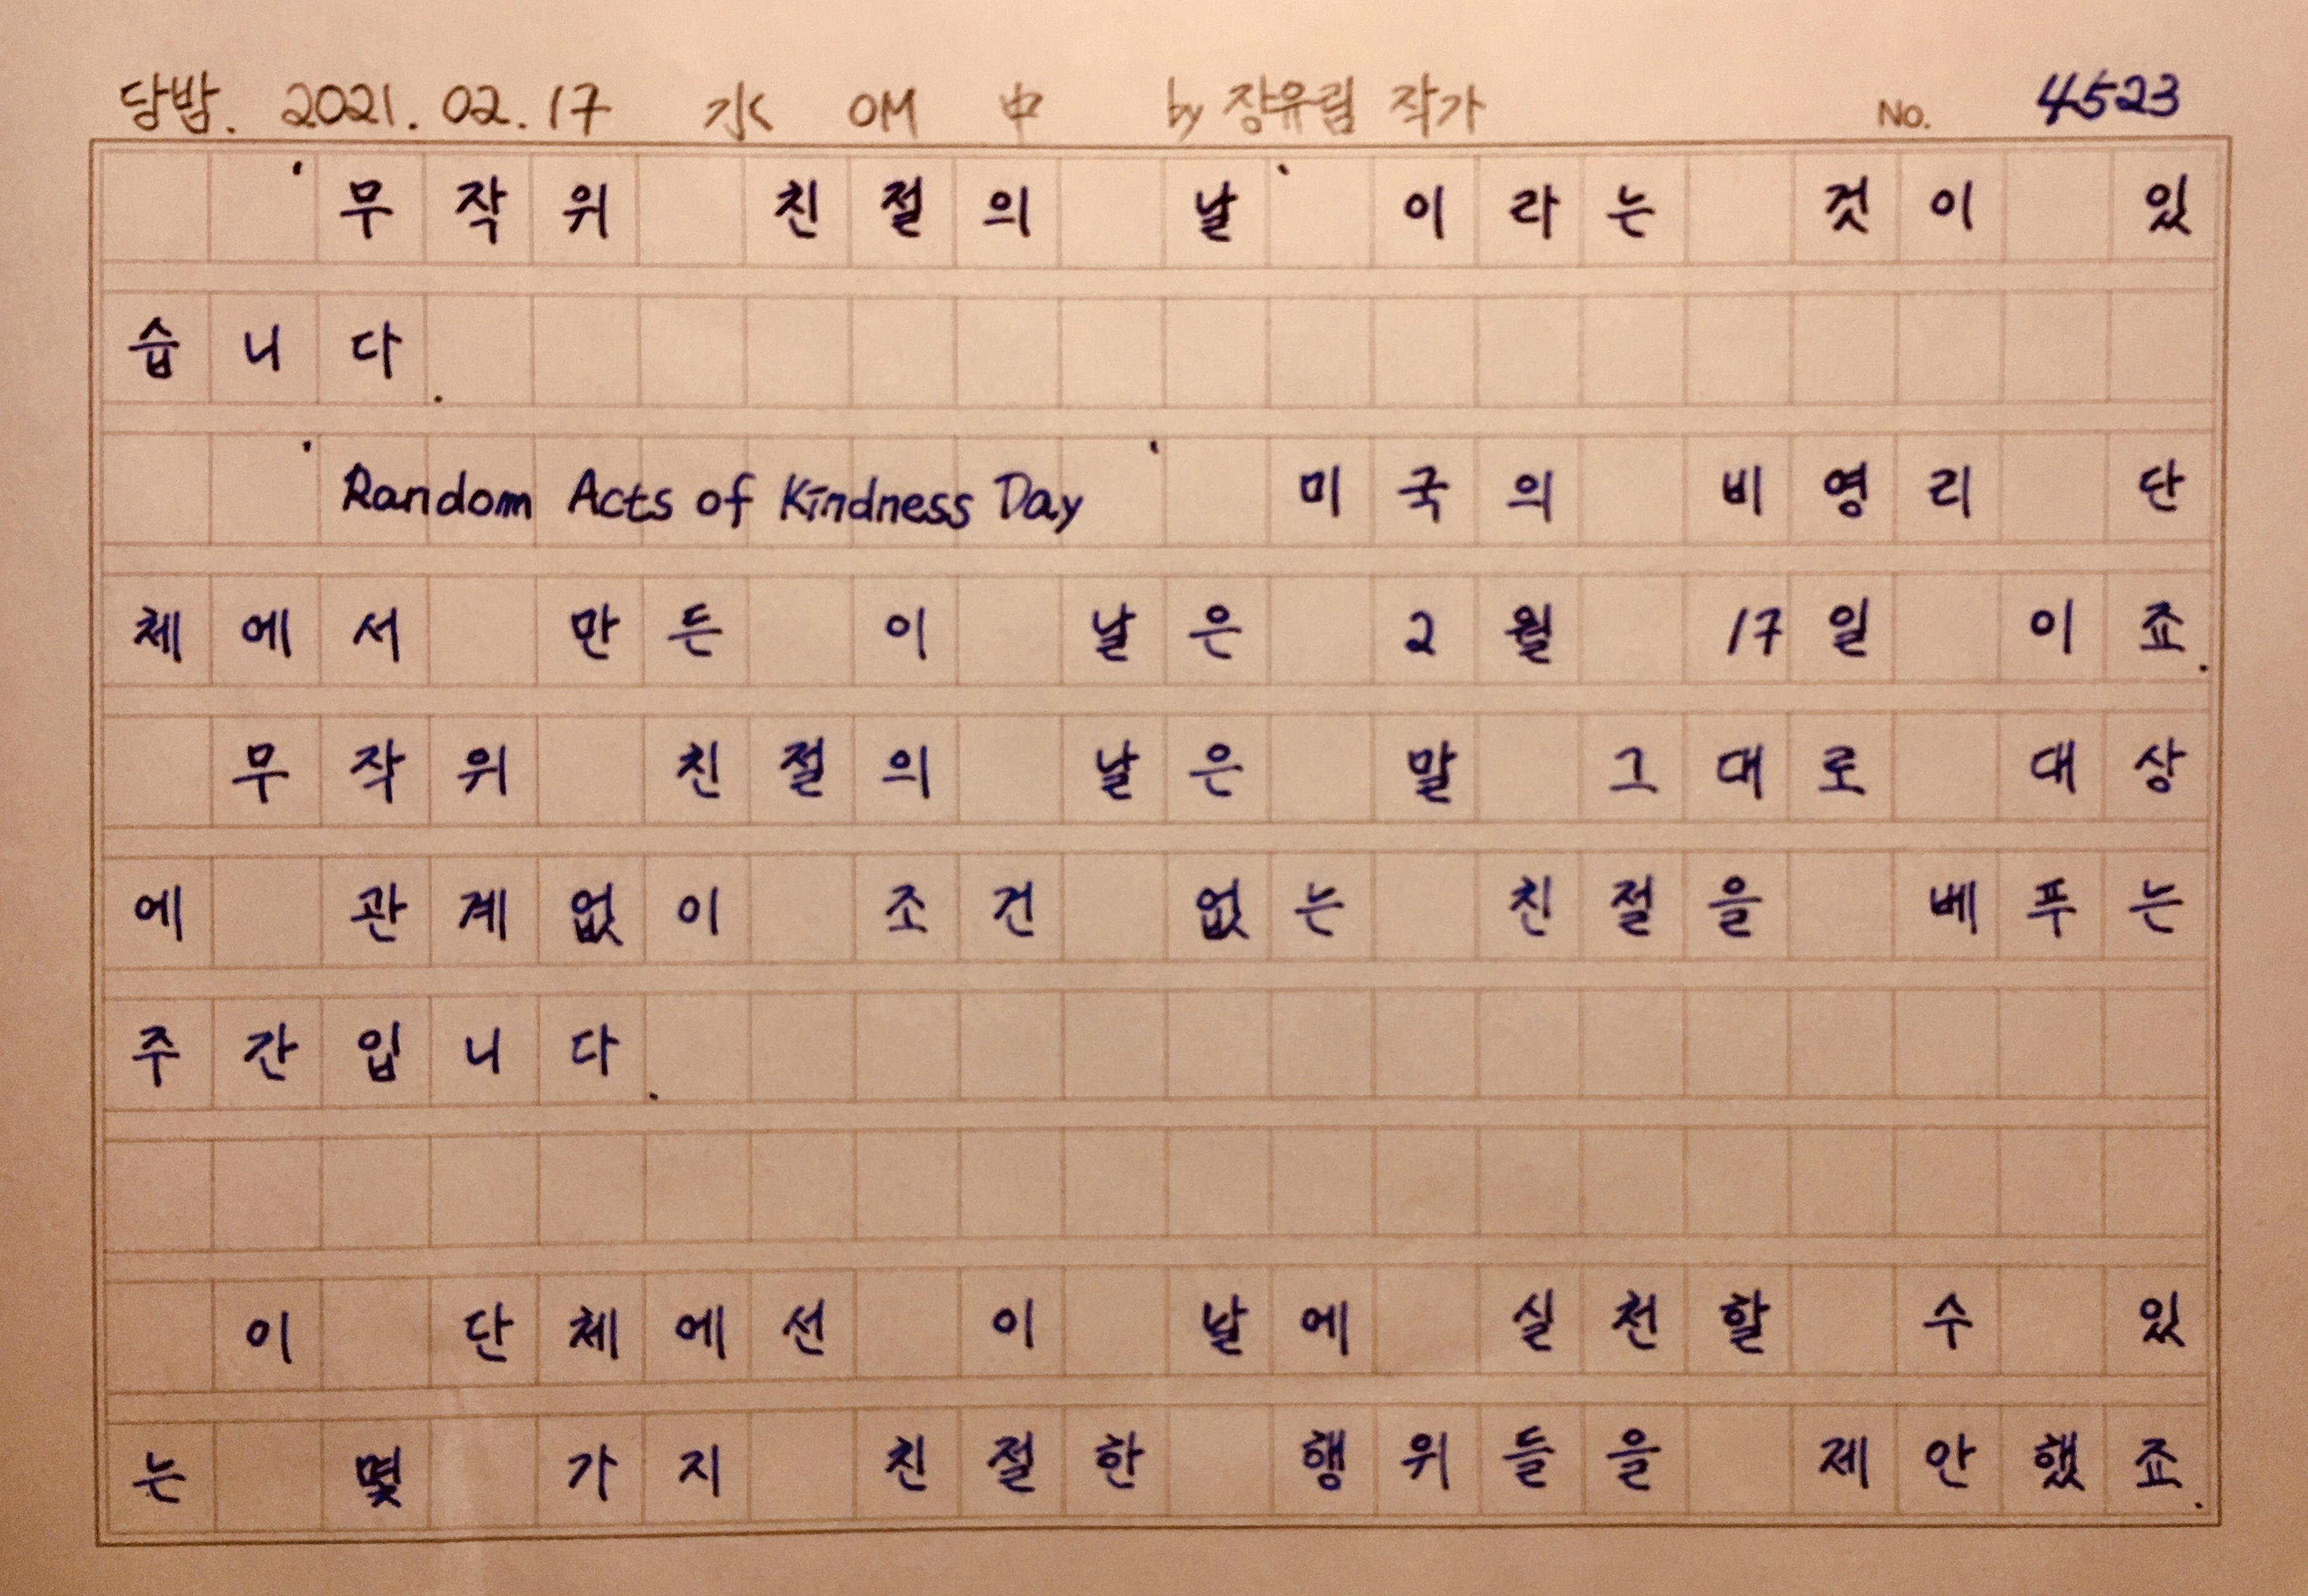 당밤. 2021. 02. 17 水 OM 中 by 장유림 작가 No. 4523
'무작위 친절의 날' 이라는 것이 있
습니다.
'Random Acts of Kindness Day' 미국의 비영리 단
체에서 만든 이 날은 2월 17일 이죠.
무작위 친절의 날은 말 그대로 대상
에 관계없이 조건 없는 친절을 베푸는
주간입니다.
이 단체에선 이 날에 실천할 수 있
는 몇 가지 친절한 행위들을 제안했죠.